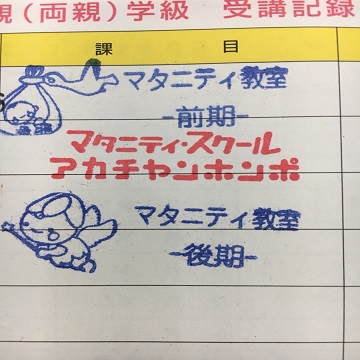 親(両親)学級 受講記録
課 目
マタニティ教室
-前期-
マタニティ・スクール
アカチャンホンポ
マタニティ教室
-後期-